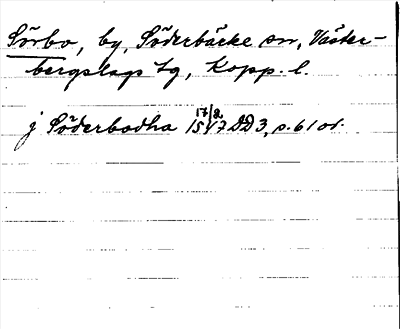 Sörbo, by, Söderbärke sn, Väster-
bergslags tg, Kopp. l.
j Söderbodha 17/2 1517 DD 3, s. 61 or.